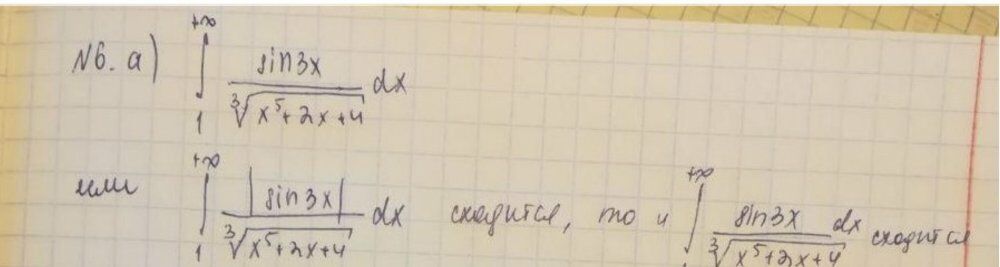 №6. а) ∫₁^{+∞} sin3x / ∛(x⁵+2x+4) dx
или ∫₁^{+∞} |sin3x| / ∛(x⁵+2x+4) dx сходится, то и ∫₁^{+∞} sin3x / ∛(x⁵+2x+4) dx сходится